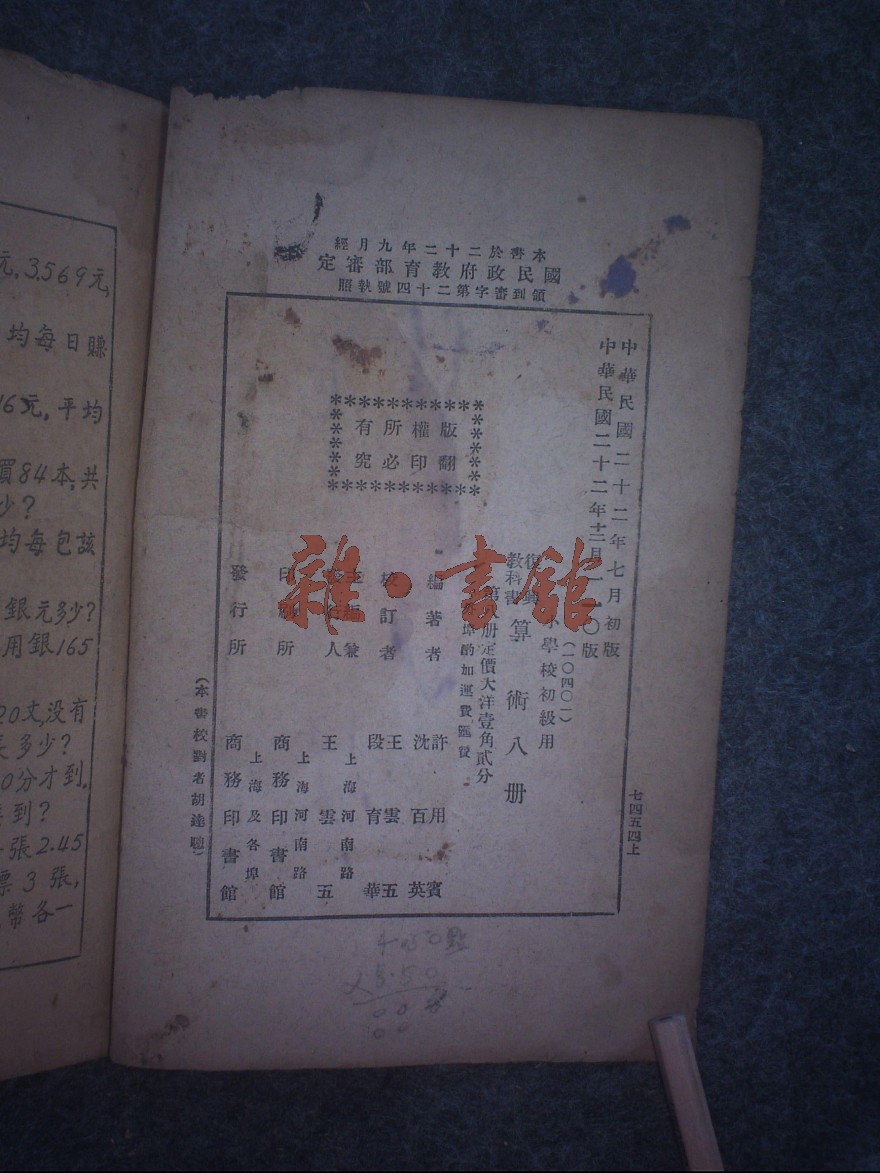 元, 3.569元,
均每日賺
16元, 平均
買84本, 共
少?
均每包該
銀元多少?
用銀165
20丈, 没有
多少?
0分才到,
到?
張2.45
票3張,
幣各一
本書於二十二年九月經
國民政府教育部審定
領到審字第二十四號執照
中華民國二十二年七月初版
中華民國二十二年十二月一一〇版
七四五四上
(一〇四〇一)
小學校初級用
復興教科書
算術八册
第八册定價大洋壹角貳分
外埠酌加運費匯費
版權所有
翻印必究
編著者
許用賓
沈百英
校訂者
王雲五
段育華
主編兼發行人
上海河南路
王雲五
印刷所
上海河南路
商務印書館
發行所
上海及各埠
商務印書館
(本書校對者胡達聰)
雜·書舘